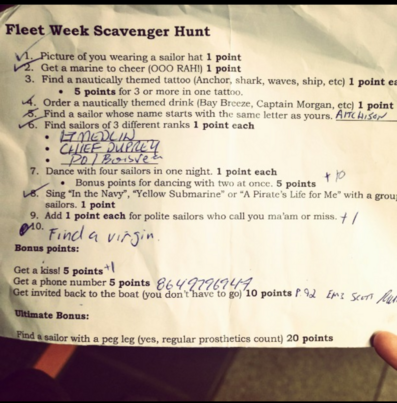 Fleet Week Scavenger Hunt
1. Picture of you wearing a sailor hat 1 point
2. Get a marine to cheer (OOO RAH!) 1 point
3. Find a nautically themed tattoo (Anchor, shark, waves, ship, etc) 1 point ea
• 5 points for 3 or more in one tattoo.
4. Order a nautically themed drink (Bay Breeze, Captain Morgan, etc) 1 point
5. Find a sailor whose name starts with the same letter as yours. AITCHISON
6. Find sailors of 3 different ranks 1 point each
• MEDLIN
• CHIEF DUPREY
• PO1
7. Dance with four sailors in one night. 1 point each
• Bonus points for dancing with two at once. 5 points +10
8. Sing "In the Navy", "Yellow Submarine" or "A Pirate's Life for Me" with a grou
sailors. 1 point
9. Add 1 point each for polite sailors who call you ma'am or miss. +1
10. Find a virgin.
Bonus points:
Get a kiss! 5 points +1
Get a phone number 5 points
Get invited back to the boat (you don't have to go) 10 points
Ultimate Bonus:
Find a sailor with a peg leg (yes, regular prosthetics count) 20 points